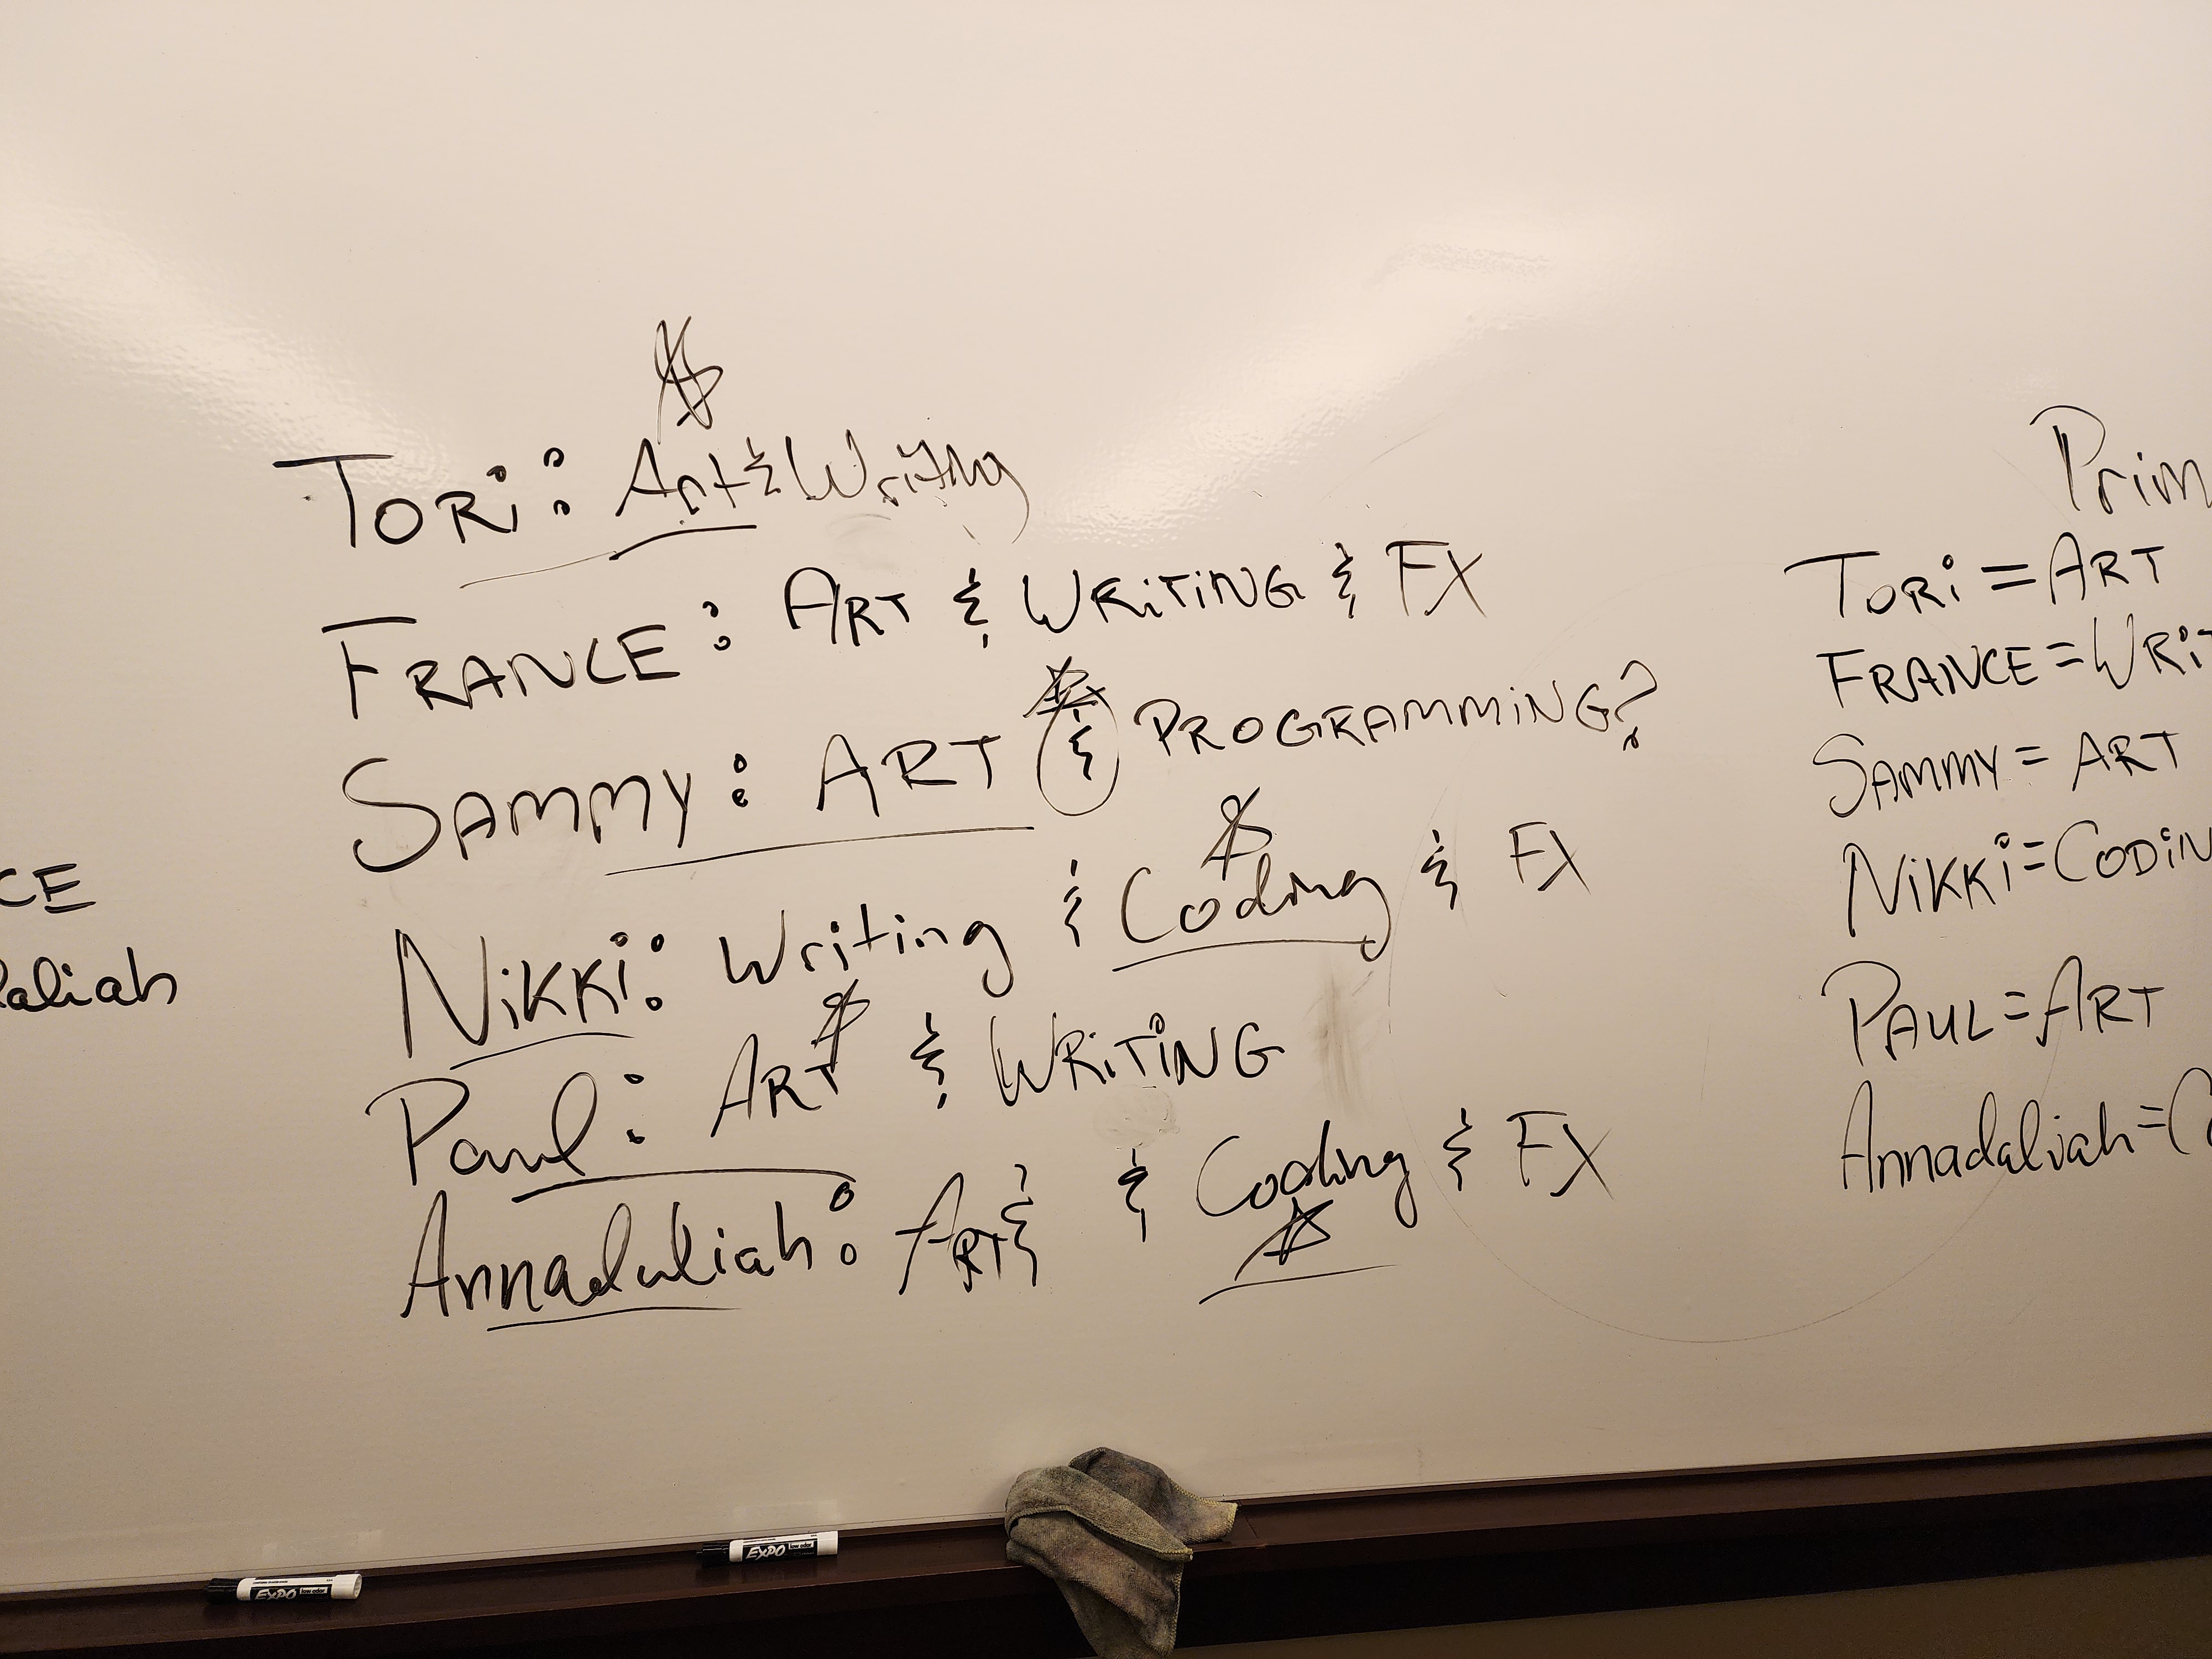 Tori: Art & Writing
FRANCE: ART & WRITING & FX
SAMMY: ART & PROGRAMMING?
NIKKI: Writing & Coding & FX
Paul: ART & WRITING
Annadaliah: ART & & Coding & FX
CE
aliah
Prim
TORi = ART
FRANCE = WRIT
SAMMY = ART
NiKKi = CODIN
PAUL = ART
Annadaliah = C
EXPO low odor
EXPO low odor